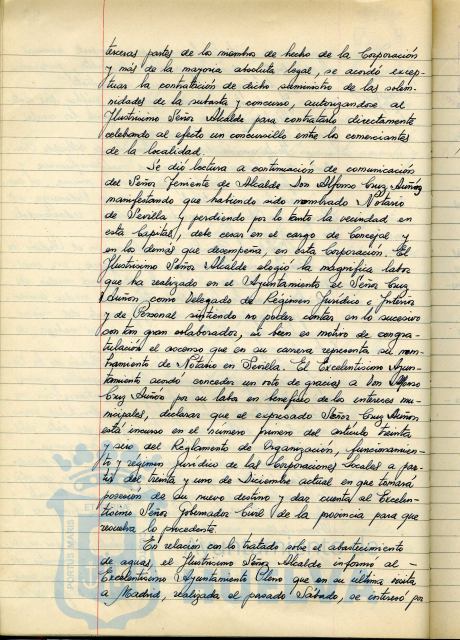 terceras partes de los miembros de hecho de la Corporación
y más de la mayoria absoluta legal, se acordó excep-
tuar la contratación de dicho suministro de las solem-
nidades de la subasta y concurso, autorizandose al
Ilustrisimo Señor Alcalde para contratarlo directamente
celebando al efecto un concursillo entre los comerciantes
de la localidad.
Se dio lectura a continuación de comunicación
del Señor Teniente de Alcalde Don Alfonso Cruz Auñón
manifestando que habiendo sido nombrado Notario
de Sevilla y perdiendo por lo tanto la vecindad en
esta Capital, debe cesar en el cargo de Concejal y
en los demás que desempeña, en esta Corporación. El
Ilustrisimo Señor Alcalde elogió la magnifica labor
que ha realizado en el Ayuntamiento el Señor Cruz
Auñón, como Delegado de Regimen Jurídico e Interior
y de Personal sintiendo no poder contar en lo sucesivo
con tan gran colaborador, si bien es motivo de congra-
tulación el ascenso que en su carrera representa su nom-
bramiento de Notario en Sevilla. El Excelentisimo Ayun-
tamiento acordo conceder un voto de gracias a Don Alfonso
Cruz Auñón por su labor en beneficio de los intereses mu-
nicipales, declarar que el expresado Señor Cruz Auñón
está incurso en el numero primero del articulo treinta
y seis del Reglamento de Organización, funcionamien-
to y régimen Jurídico de las Corporaciones Locales a par-
tir del treinta y uno de Diciembre actual en que tomará
posesión de su nuevo destino y dar cuenta al Excelen-
tisimo Señor Gobernador Civil de la provincia para que
resuelva lo procedente.
En relación con lo tratado sobre el abastecimiento
de aguas, el Ilustrisimo Señor Alcalde informo al -
Excelentisimo Ayuntamiento Pleno que en su ultima visita
a Madrid, realizada el pasado Sábado, se intereso por
PORTUS MARIS